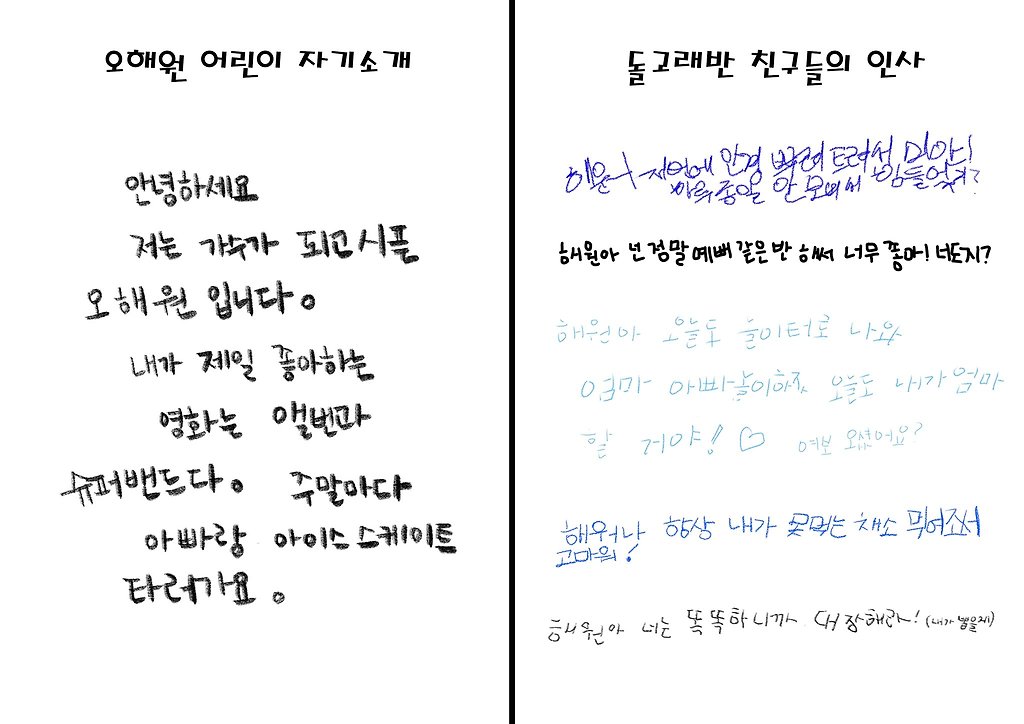 오해원 어린이 자기소개
안녕하세요
저는 가수가 되고시픈
오해원 입니다.
내가 제일 좋아하는
영화는 앨빈과
슈퍼밴드다. 주말마다
아빠랑 아이스스케이트
타러가요.
돌고래반 친구들의 인사
안경 트려서 미안!
하루종일 안 힘들었지?
해원아 넌 정말 예뻐 같은반 해써 너무 좋아! 너도지?
해원아 오늘도 놀이터로 나와
엄마 아빠놀이하자 오늘도 내가 엄마
할 거야! ♡ 여보 오셨어요?
해워나 항상 내가 못먹는 채소 먹어조서
고마워!
해원아 너는 똑똑하니까 대장해라! (내가 뽑을게)